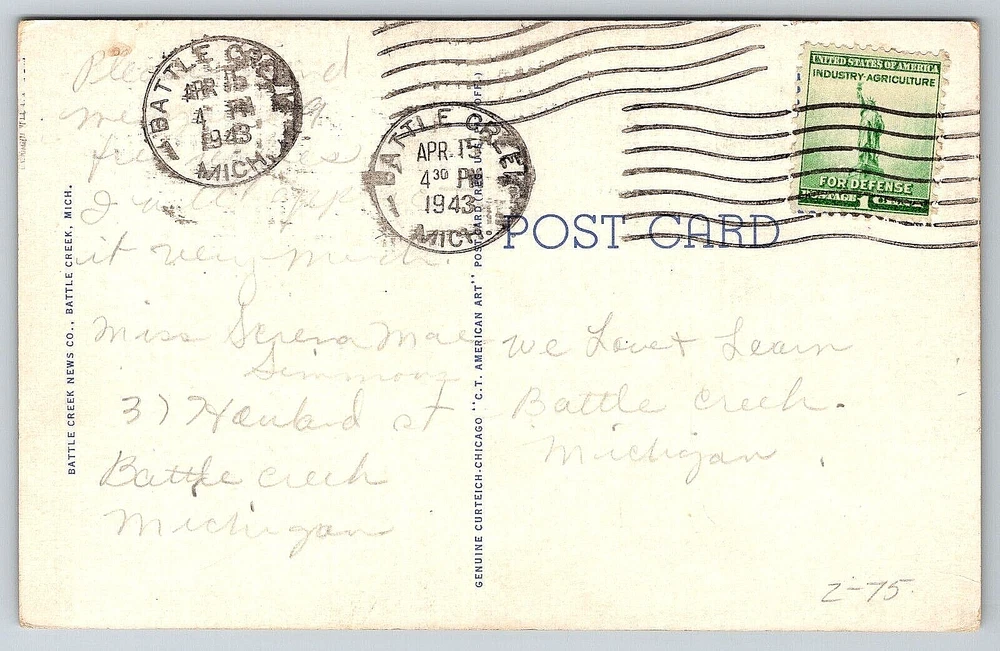 BATTLE CREEK
APR 15
4 PM
1943
MICH.
BATTLE CREEK
APR 15
4 30 PM
1943
MICH.
UNITED STATES OF AMERICA
INDUSTRY·AGRICULTURE
FOR DEFENSE
POSTAGE 1¢
POST CARD
me
I will
it very much.
Miss Serena Mae
Simmons
37 Haubard st
Battle creek
Michigan
We Love & Learn
Battle creek.
Michigan
2-75
BATTLE CREEK NEWS CO., BATTLE CREEK, MICH.
GENUINE CURTEICH-CHICAGO "C.T. AMERICAN ART" POST CARD (REG. U.S. OFF.)